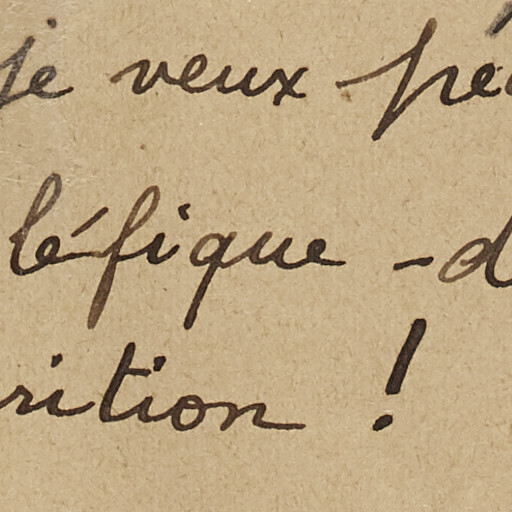 je veux
léfique - d
rition !